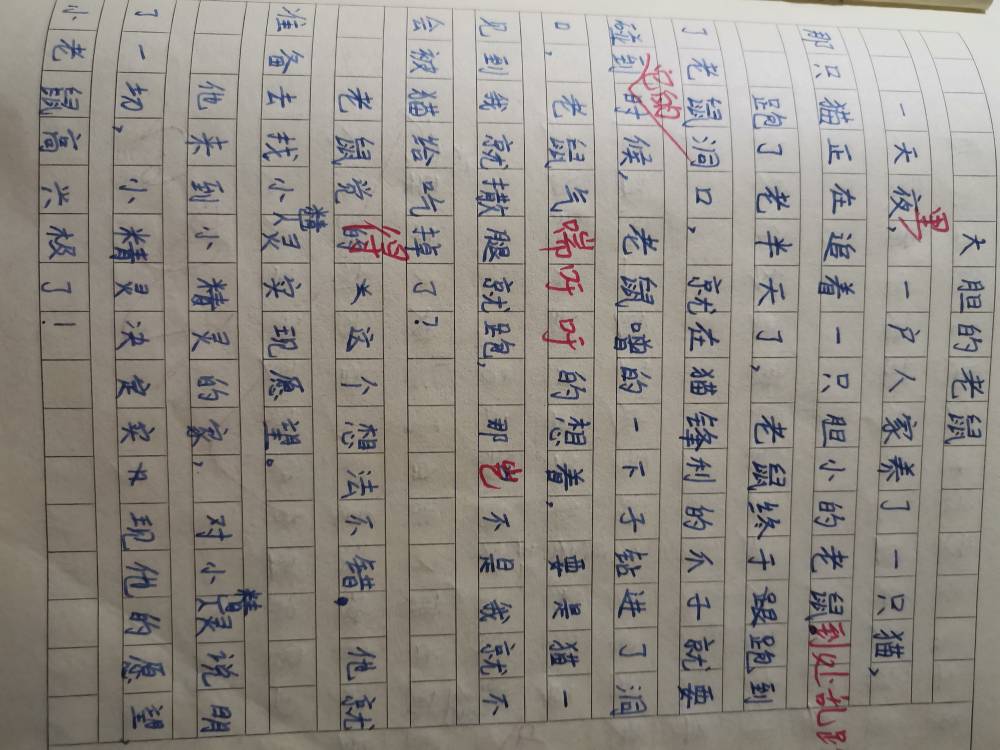 大胆的老鼠
一天夜里，一户人家养了一只猫，
那只猫正在追着一只胆小的老鼠到处乱跑
跑了老半天了，老鼠终于跟跑到
了老鼠洞口，就在猫锋利的爪子就要
碰到时候，老鼠噌的一下子钻进了洞
口，老鼠气喘吁吁的想着，要是猫一
见到我就撒腿就跑，那也不是我就不
会被猫给吃掉了？
老鼠觉得这个想法不错。他就
准备去找小精灵实现愿望。
他来到小精灵的家，对小精灵说明
了一切，小精灵决定实现他的愿望
小老鼠高兴极了！